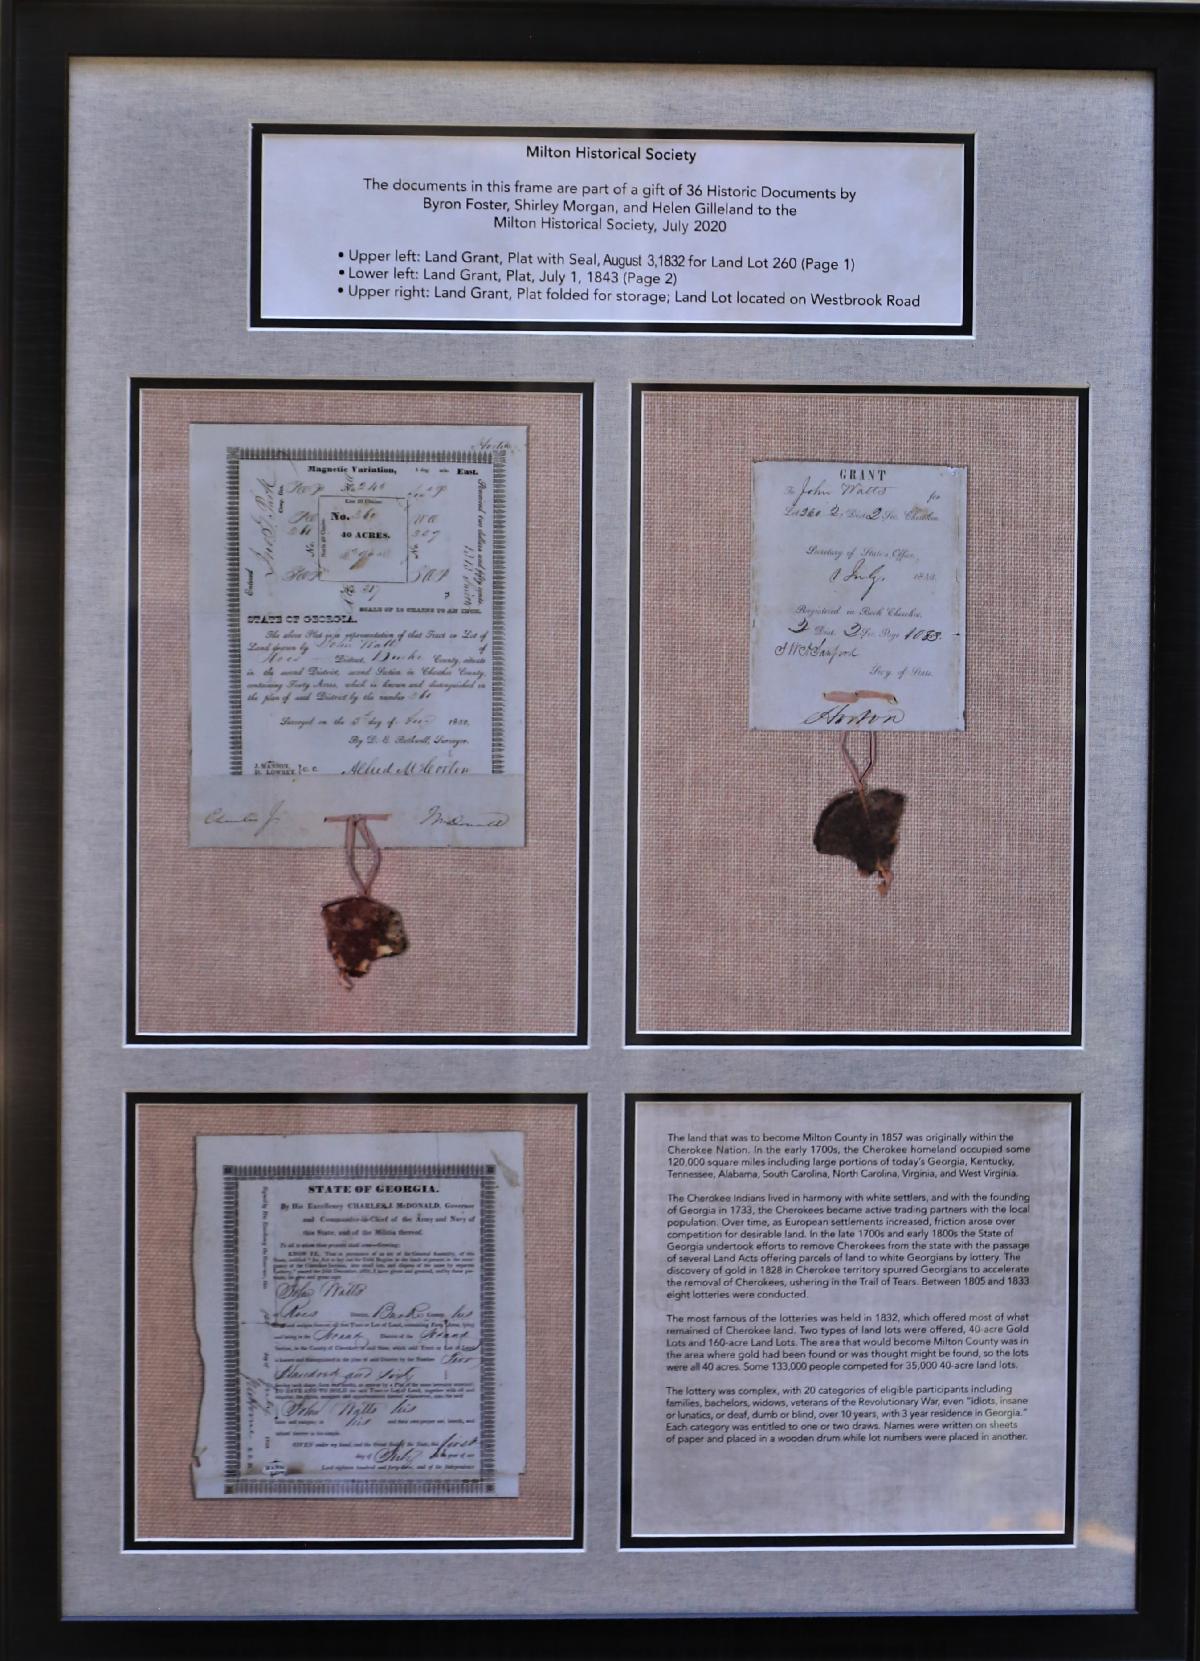 Milton Historical Society
The documents in this frame are part of a gift of 36 Historic Documents by
Byron Foster, Shirley Morgan, and Helen Gilleland to the
Milton Historical Society, July 2020
• Upper left: Land Grant, Plat with Seal, August 3,1832 for Land Lot 260 (Page 1)
• Lower left: Land Grant, Plat, July 1, 1843 (Page 2)
• Upper right: Land Grant, Plat folded for storage; Land Lot located on Westbrook Road
Magnetic Variation, East.
No. 260
40 ACRES.
SCALE OF 10 CHAINS TO AN INCH.
STATE OF GEORGIA.
The above Plat is a representation of that Tract or Lot of
Land drawn by John Watts of
District, Burke County, situate
in the second District, second Section in Cherokee County,
containing Forty Acres, which is known and distinguished in
the plan of said District by the number 260
Surveyed on the day of 1832.
Surveyor.
C. C.
Charles J. McDonald
GRANT
To John Watts for
Lot 260 2 Dist 2 Sec. Cherokee
Secretary of State's Office,
1 July
Registered in Book Cherokee
2 Dist. 2 Sec. Page 1083
Secy. of State.
Horton
STATE OF GEORGIA.
By His Excellency CHARLES J. McDONALD, Governor
and Commander-in-Chief of the Army and Navy of
this State, and of the Militia thereof.
To all to whom these presents shall come—Greeting:
John Watts
District, Burke County, his
Second District of the Second
is known and distinguished in the plan of said District by the Number Two
Hundred and Sixty
John Watts his
GIVEN under my hand, and the Great Seal of the State, this first
day of July in the year of our
Lord eighteen hundred and forty-three, and of the Independence
The land that was to become Milton County in 1857 was originally within the
Cherokee Nation. In the early 1700s, the Cherokee homeland occupied some
120,000 square miles including large portions of today's Georgia, Kentucky,
Tennessee, Alabama, South Carolina, North Carolina, Virginia, and West Virginia.
The Cherokee Indians lived in harmony with white settlers, and with the founding
of Georgia in 1733, the Cherokees became active trading partners with the local
population. Over time, as European settlements increased, friction arose over
competition for desirable land. In the late 1700s and early 1800s the State of
Georgia undertook efforts to remove Cherokees from the state with the passage
of several Land Acts offering parcels of land to white Georgians by lottery. The
discovery of gold in 1828 in Cherokee territory spurred Georgians to accelerate
the removal of Cherokees, ushering in the Trail of Tears. Between 1805 and 1833
eight lotteries were conducted.
The most famous of the lotteries was held in 1832, which offered most of what
remained of Cherokee land. Two types of land lots were offered, 40-acre Gold
Lots and 160-acre Land Lots. The area that would become Milton County was in
the area where gold had been found or was thought might be found, so the lots
were all 40 acres. Some 133,000 people competed for 35,000 40-acre land lots.
The lottery was complex, with 20 categories of eligible participants including
families, bachelors, widows, veterans of the Revolutionary War, even "idiots, insane
or lunatics, or deaf, dumb or blind, over 10 years, with 3 year residence in Georgia."
Each category was entitled to one or two draws. Names were written on sheets
of paper and placed in a wooden drum while lot numbers were placed in another.